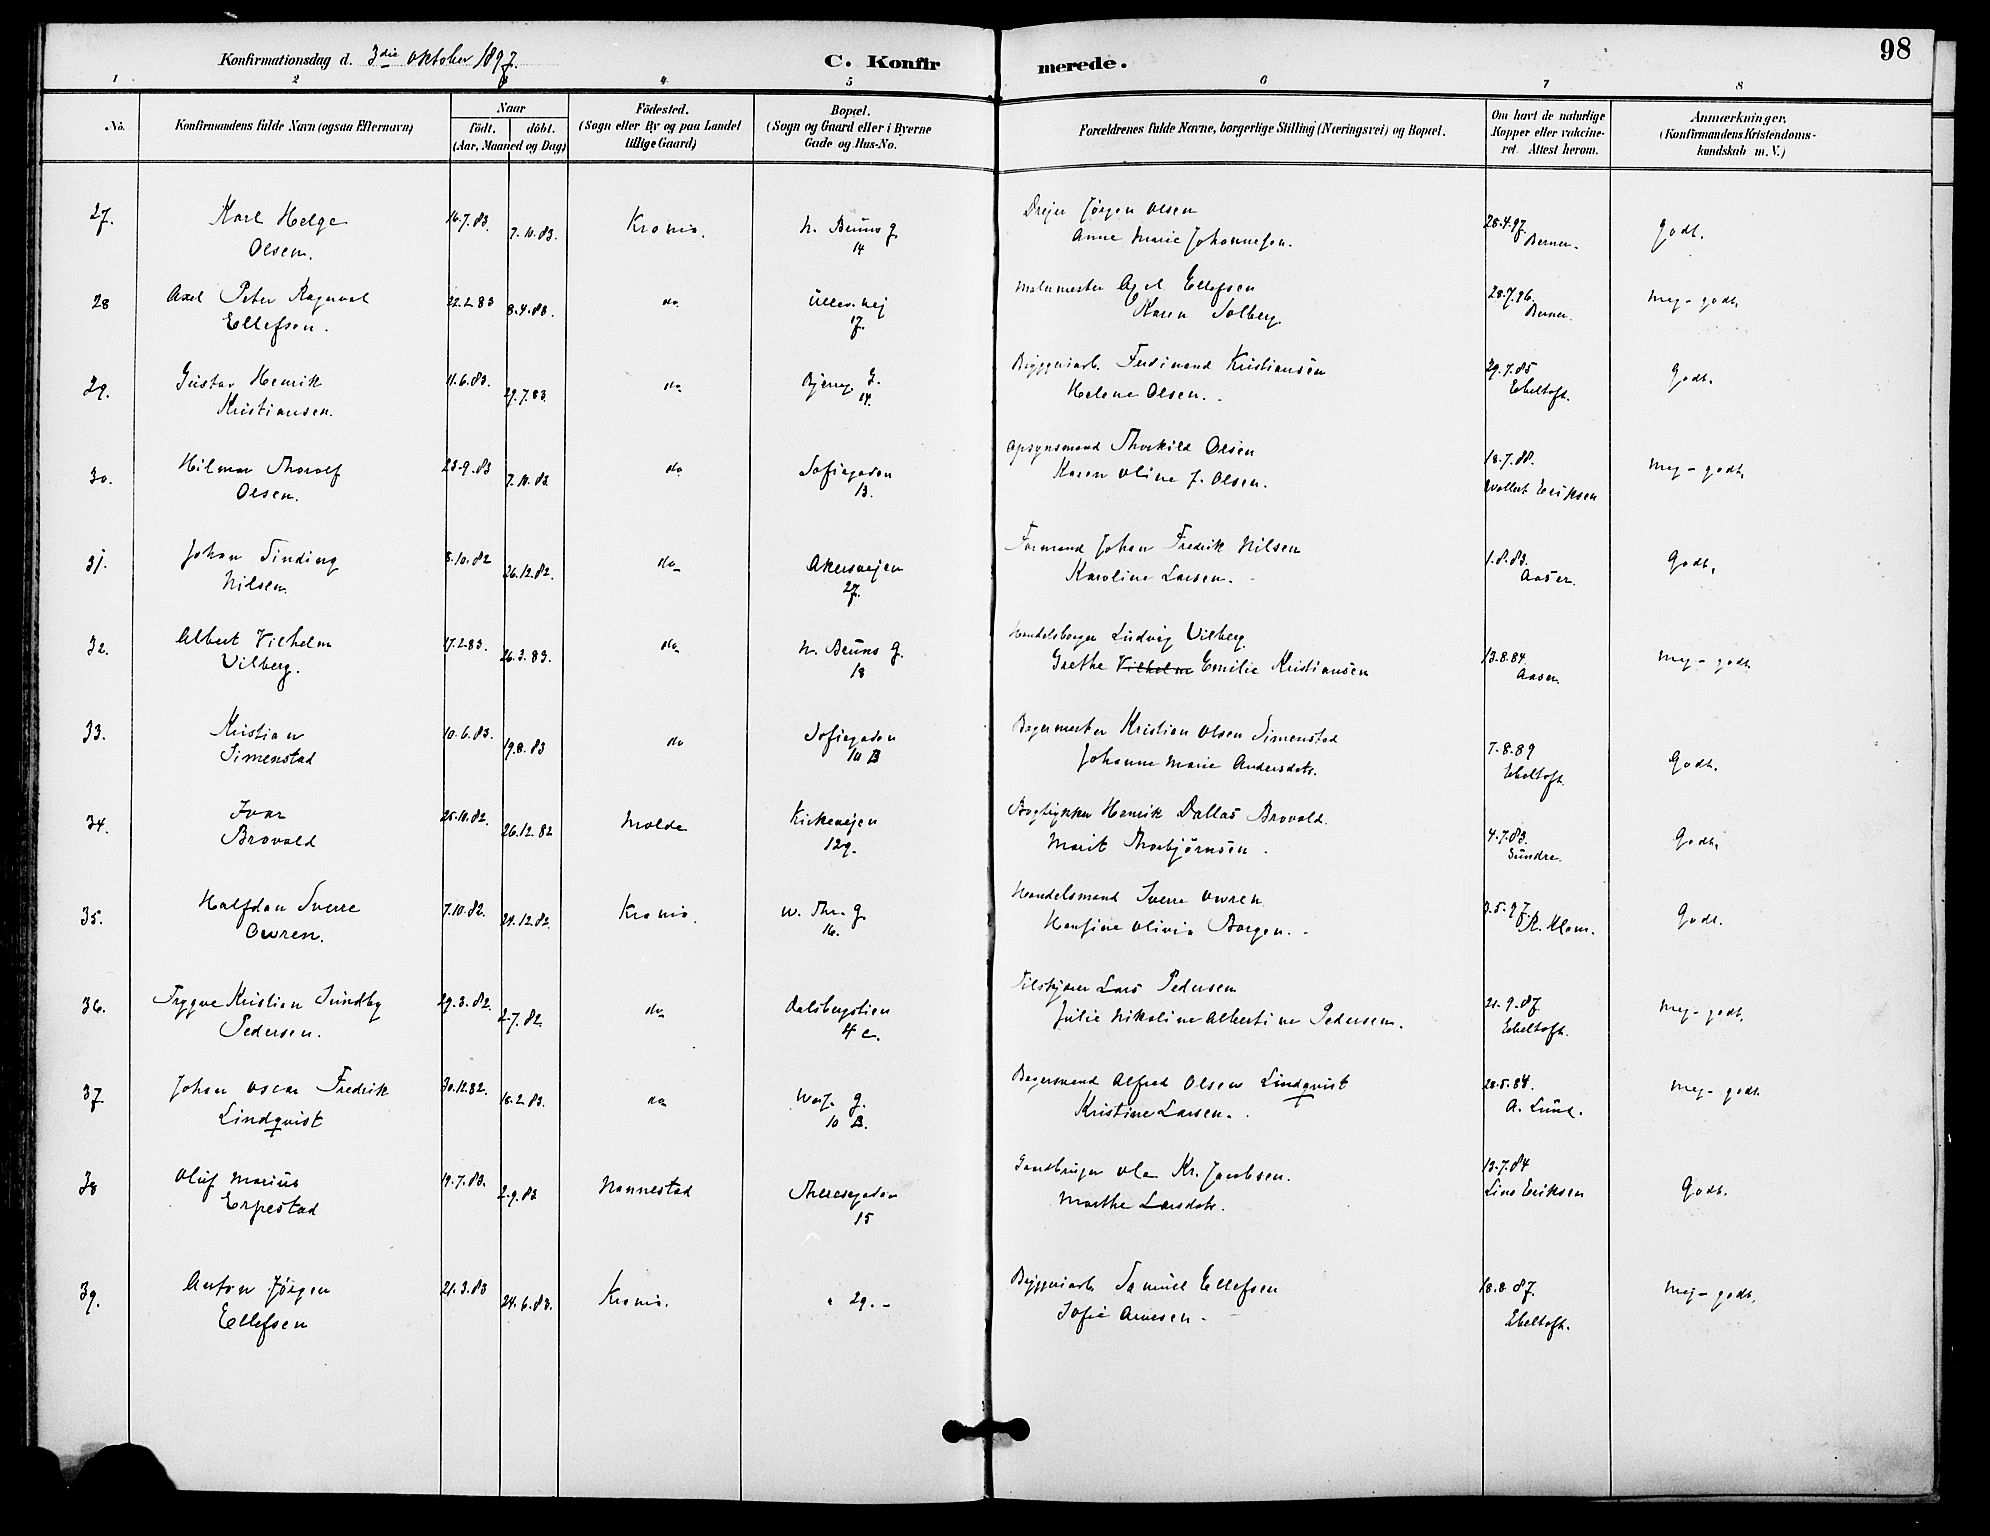 98
Konfirmationsdag d. 3die Oktober 1897.
C. Konfirmerede.
1 2 3 4 5 6 7 8
No.
Konfirmandens fulde Navn (ogsaa Efternavn)
Naar
födt. döbt.
(Aar, Maaned og Dag)
Födested.
(Sogn eller By og paa Landet
tillige Gaard)
Bopæl.
(Sogn og Gaard eller i Byerne
Gade og Hus-No.
Forældrenes fulde Navne, borgerlige Stilling (Næringsvei) og Bopæl.
Om havt de naturlige
Kopper eller vakcine-
ret. Attest herom.
Anmærkninger,
(Konfirmandens Kristendoms-
kundskab m. V.)
27. Karl Helge 16.7.83. 7.10.83. Kr.ania. N. Bruns g. Drejer Jørgen Olsen 28.4.97. Godt.
Olsen. 14 Anne Marie Johannesen. Berner.
28 Axel Peter Ragnval 22.2.83 8.4.83. do Ullev. vej Malermester Axel Ellefsen 28.7.96. Meg-godt.
Ellefsen. 17. Karen Solberg. Berner.
29. Gustav Henrik 11.6.83. 29.7.83. do Bjerreg. G. Bryggeriarb. Ferdinand Kristiansen 29.7.85 Godt.
Kristiansen. 14. Helene Olsen. Ebeltoft.
30. Hilmar Thorolf 23.9.83 7.10.83. do Sofiegaden Opsynsmand Thorkild Olsen 18.7.88. Meg-godt.
Olsen. 13. Karen Oline J. Olsen. Wollert Eriksen
31. Johan Sinding 8.10.82 26.12.82. do Akersvejen Formand Johan Fredrik Nilsen 1.8.83. Godt.
Nilsen. 27. Karoline Larsen. Aaser.
32. Albert Vilhelm 17.2.83. 26.3.83. do N. Bruns g. Handelsborger Ludvig Vilberg 13.8.84. Meg-godt
Vilberg. 18 Grethe Vilhelm Emilie Kristiansen Aaser.
33. Kristian 10.6.83. 19.8.83 do Sofiegaden Bagermester Kristian Olsen Simenstad 7.8.89 Godt.
Simenstad 10 B Johanne Marie Andersdatr. Ebeltoft.
34. Ivar 25.10.82. 26.12.82 Molde Kirkevejen Bogtrykker Henrik Dallas Brovold. 4.7.83. Godt.
Brovold 129. Marit Thorbjörnsen. Sundre.
35. Halfdan Sverre 7.10.82. 24.12.82. Kr.ania. W. Thr. g. Handelsmand Sverre Owren. 3.5.97. Godt.
Owren. 16. Hansine Olivia Borgen. K. Klem.
36. Trygve Kristian Sundby 29.3.82. 2.7.82 do Dalsbergstien Filskjærer Lars Pedersen 21.9.87. Meg-godt.
Pedersen. 4 c. Julie Nikoline Albertine Pedersen. Ebeltoft.
37. Johan Oscar Fredrik 30.12.82. 18.2.83. do g. Bagersvend Alfred Olsen Lindqvist 28.5.84. Meg-godt.
Lindqvist 10 B. Kristine Larsen. A. Lund.
38 Oluf Marius 19.7.83. 2.9.83 Nannestad Theresegaden Gaardbruger Ole Kr. Jacobsen. 13.7.84 Godt.
Erpestad 15 Marthe Larsdatr. Lins Eriksen
39. Anton Jörgen 21.3.83 24.6.83. Kr.ania. " 29. - Bryggeriarb. Samuel Ellefsen 18.8.87. Meg-godt.
Ellefsen Sofie Arnesen. Ebeltoft.